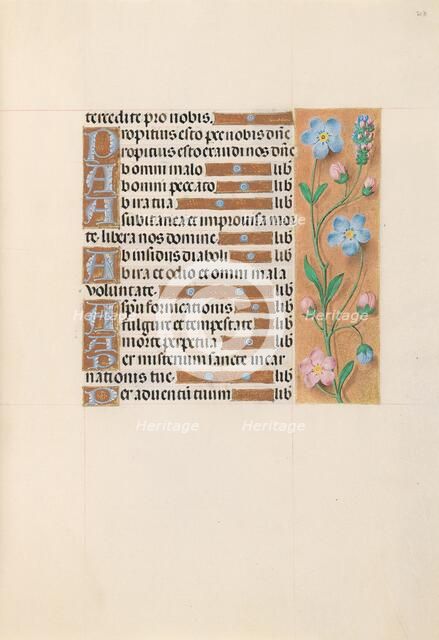 tercedite pro nobis.
Propitius esto p̄ce nobis dn̄e
Propitius esto exaudi nos dn̄e
Ab omni malo lib
Ab omni peccato lib
Ab ira tua lib
A subitanea et improvisa mor
te libera nos domine. lib
Ab insidiis diaboli lib
Ab ira et odio et omni mala
voluntate. lib
A sp̄u fornicationis lib
A fulgure et tempestate lib
A morte perpetua lib
Per misterium sancte incar
nationis tue lib
Per adventū tuum lib
Heritage Images